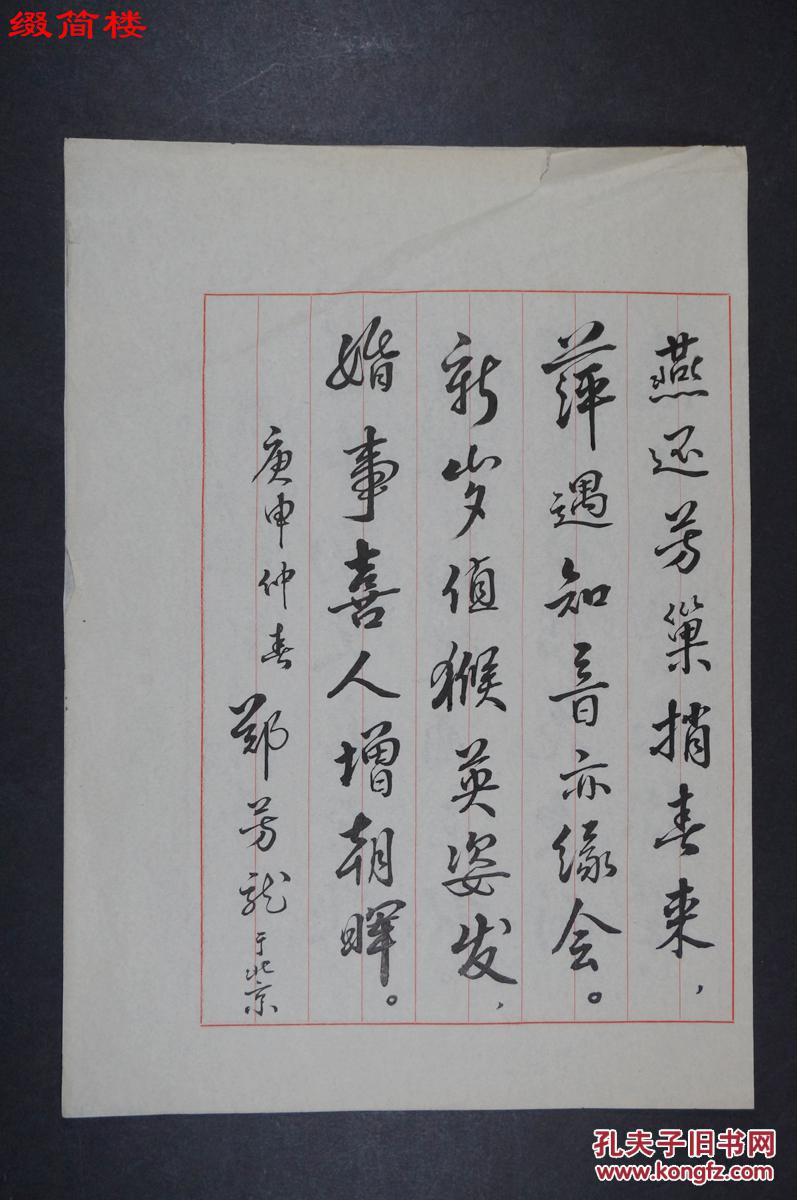 缀简楼
燕还芳巢捎春来，
萍遇知音亦缘会。
新岁值猴英姿发，
婚事喜人增朝晖。
庚申仲春 郑芳龙 于北京
孔夫子旧书网
www.kongfz.com